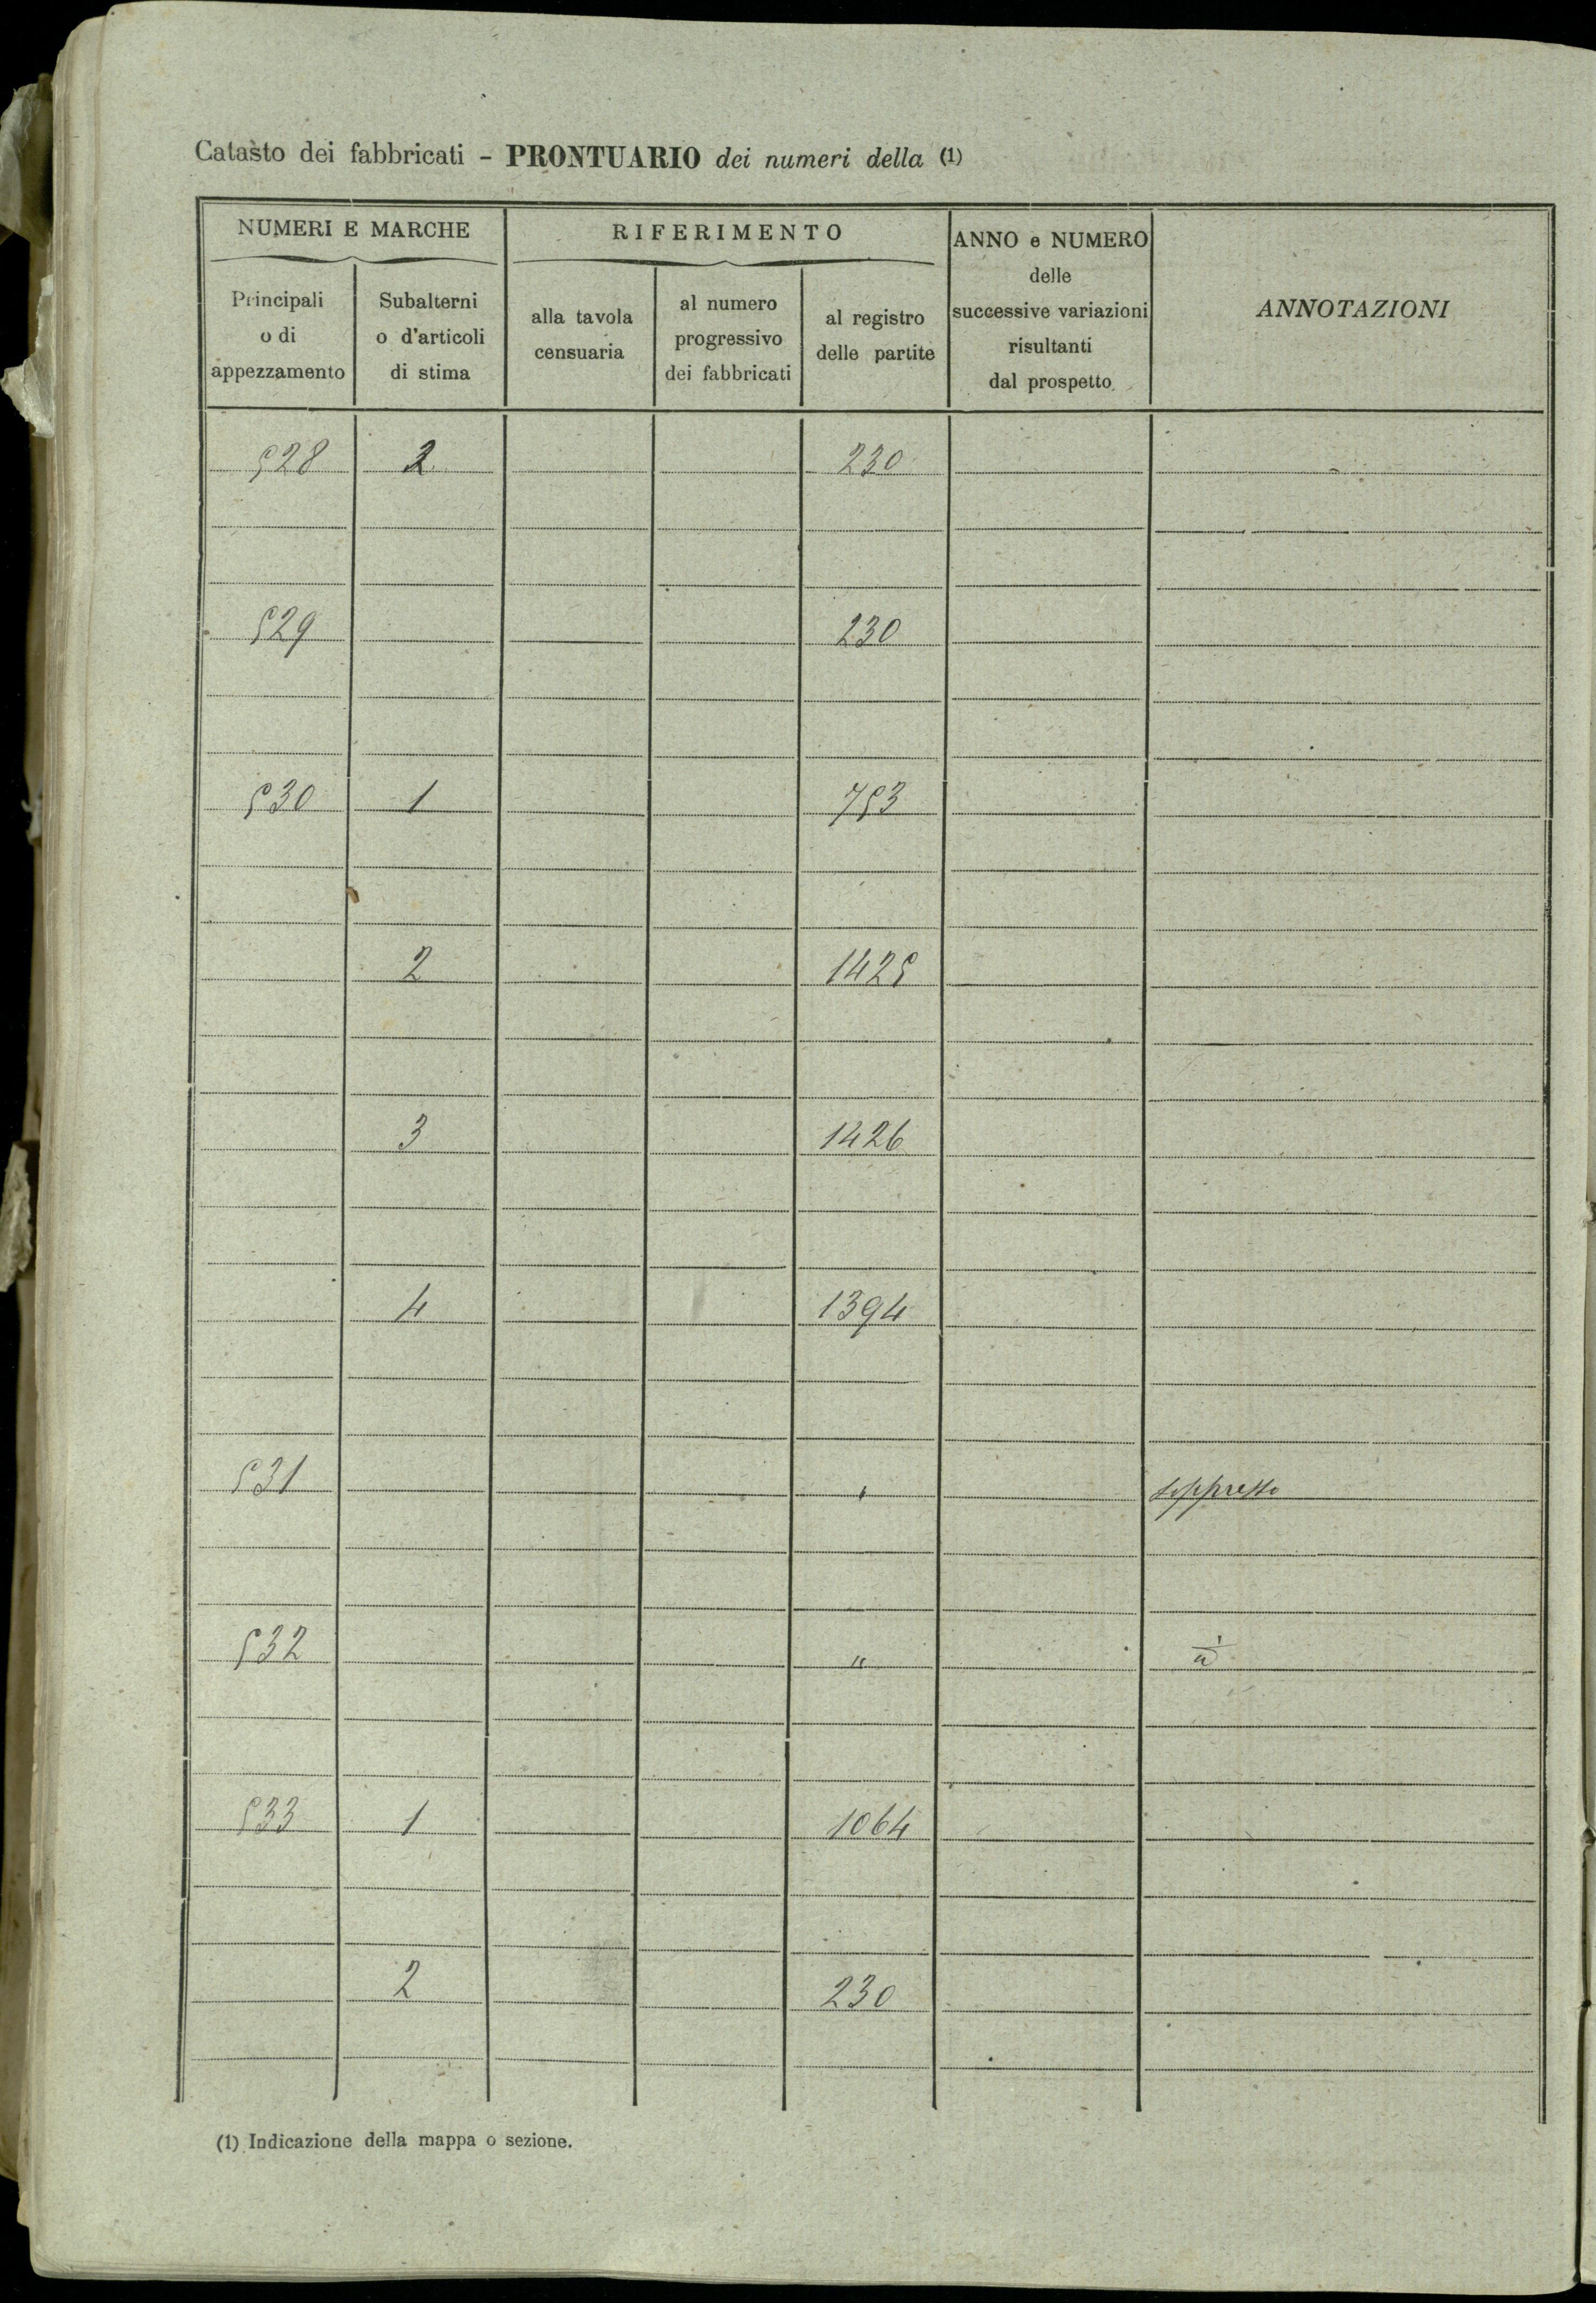 Catasto dei fabbricati - PRONTUARIO dei numeri della (1)
NUMERI E MARCHE
RIFERIMENTO
ANNO e NUMERO
delle
successive variazioni
risultanti
dal prospetto
ANNOTAZIONI
Principali
o di
appezzamento
Subalterni
o d'articoli
di stima
alla tavola
censuaria
al numero
progressivo
dei fabbricati
al registro
delle partite
528 2 230
529 230
530 1 753
2 1425
3 1426
4 1394
531 " soppresso
532 "
533 1 1064
2 230
(1) Indicazione della mappa o sezione.